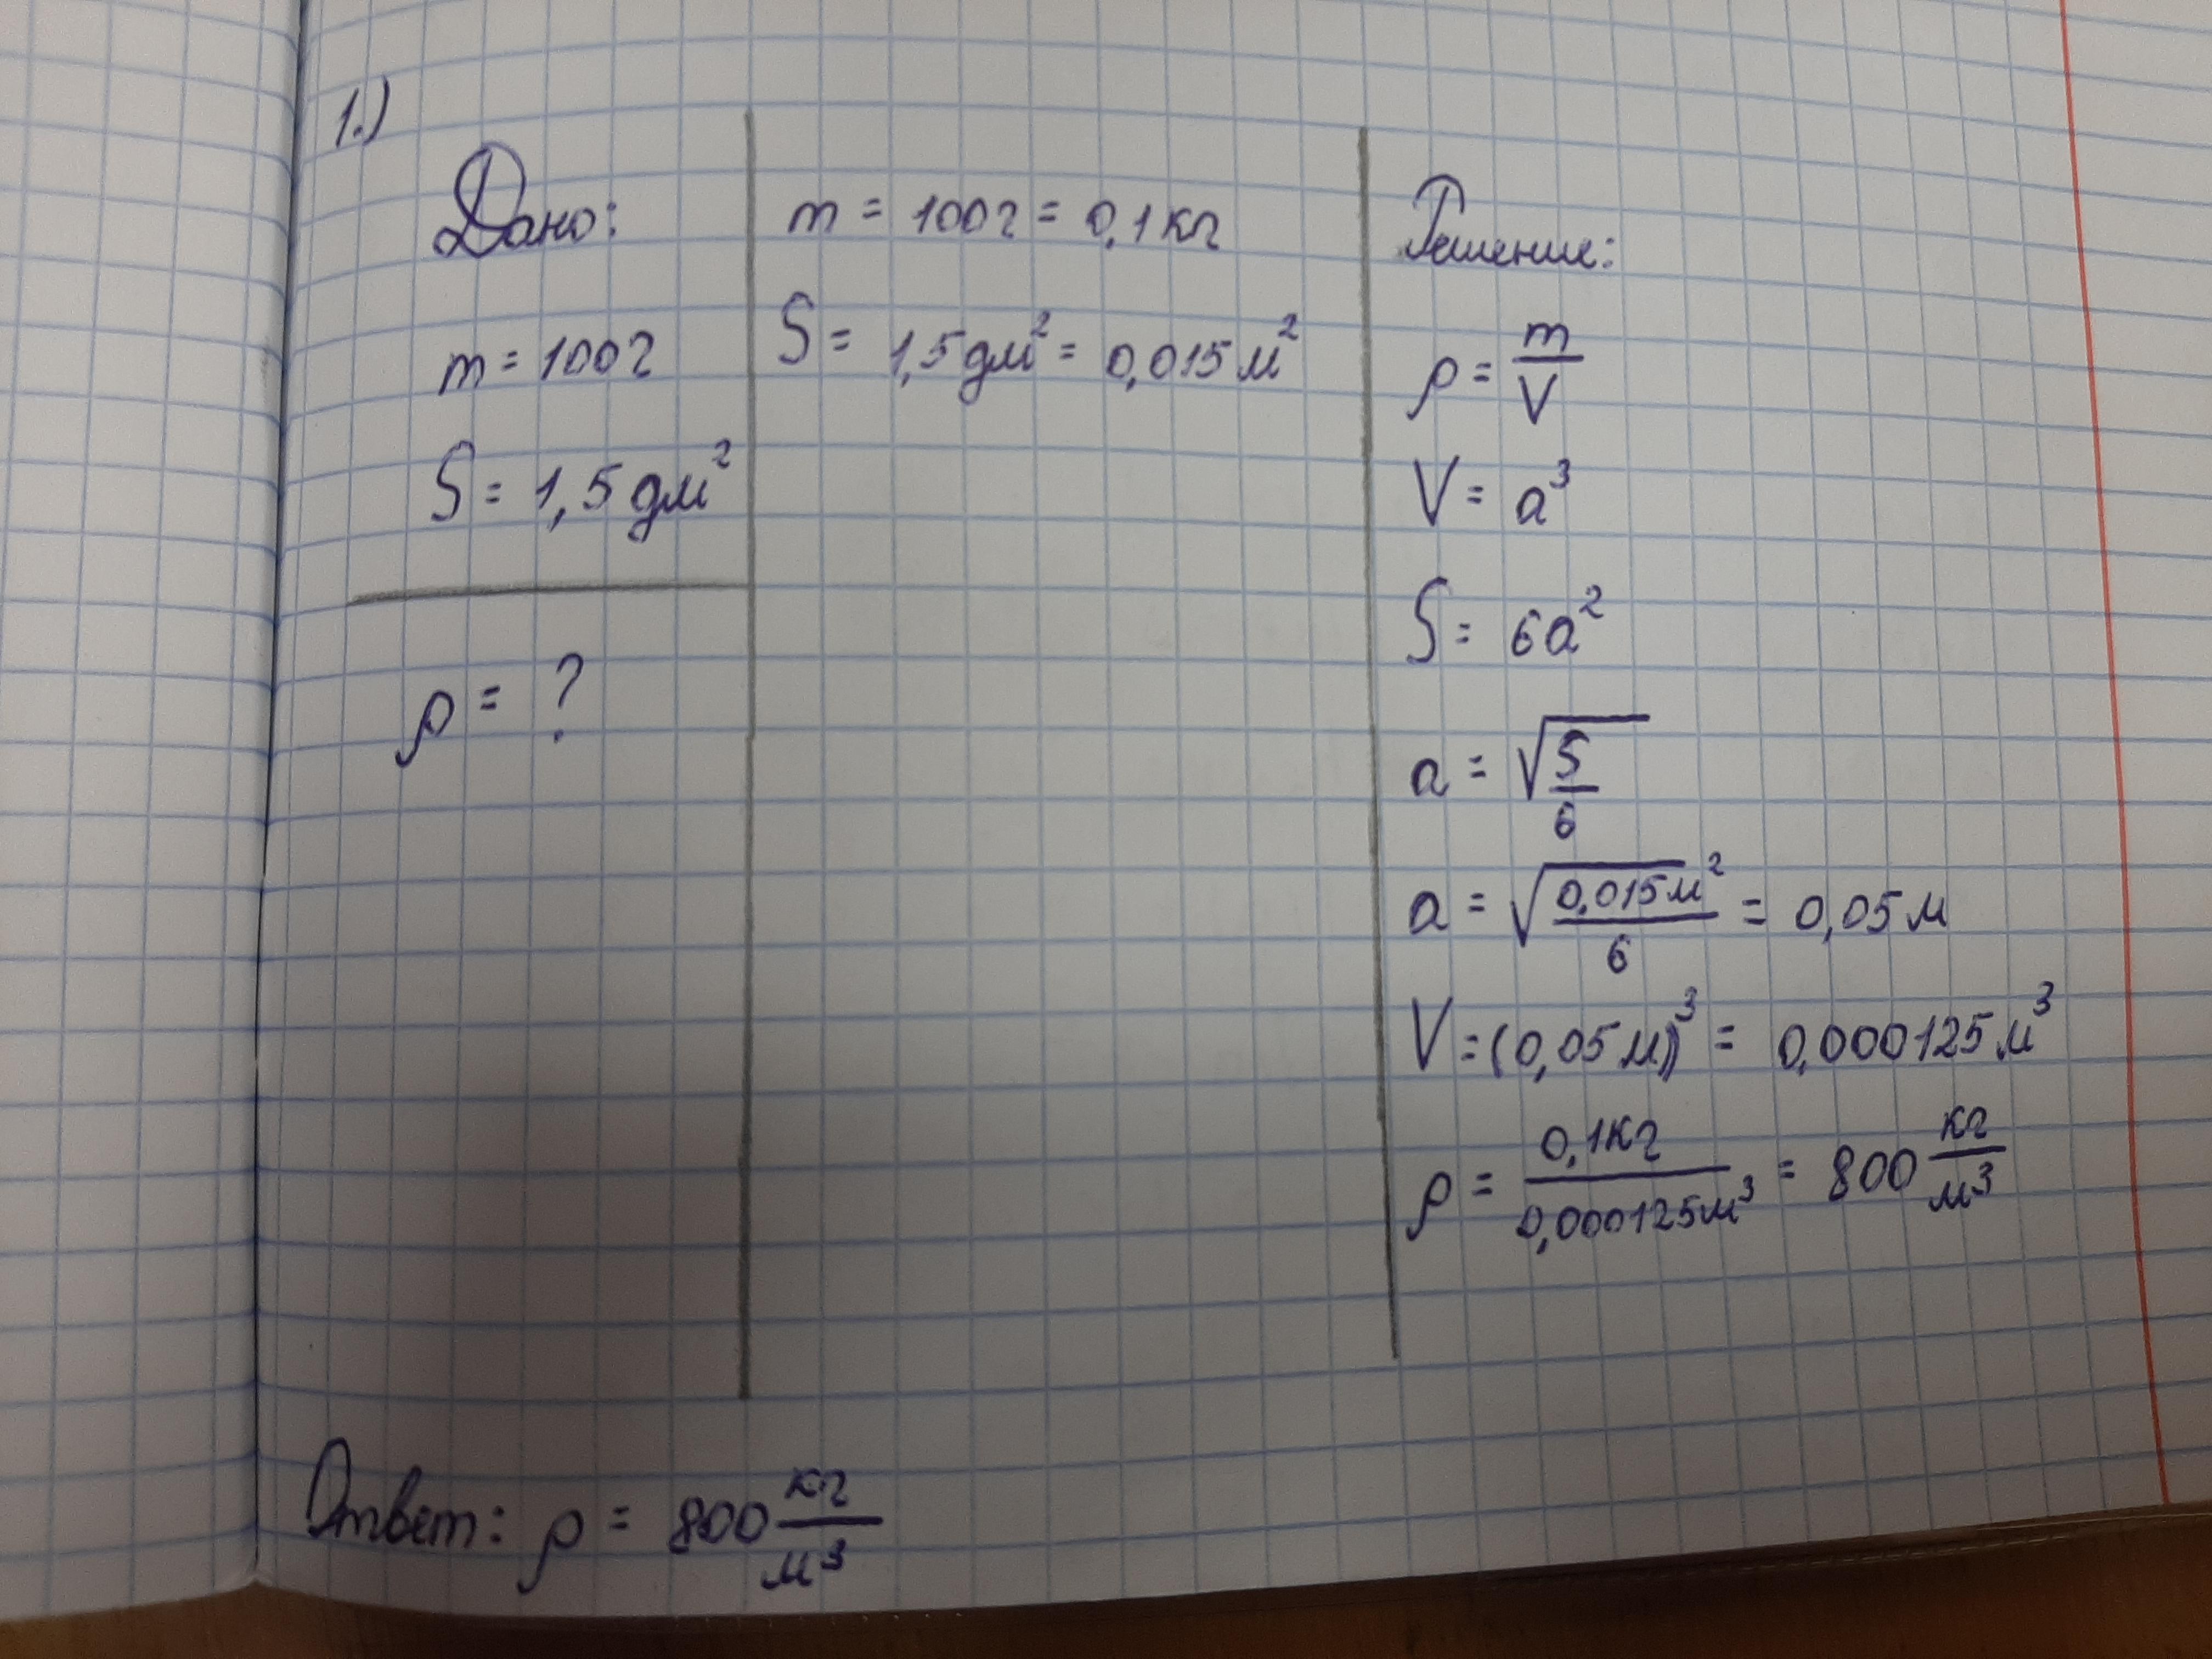 1.)
Дано:
m = 100г
S = 1,5 дм²
ρ = ?
m = 100г = 0,1кг
S = 1,5 дм² = 0,015 м²
Решение:
ρ = m/V
V = a³
S = 6a²
a = √S/6
a = √0,015м²/6 = 0,05 м
V = (0,05 м)³ = 0,000125 м³
ρ = 0,1кг/0,000125м³ = 800 кг/м³
Ответ: ρ = 800 кг/м³